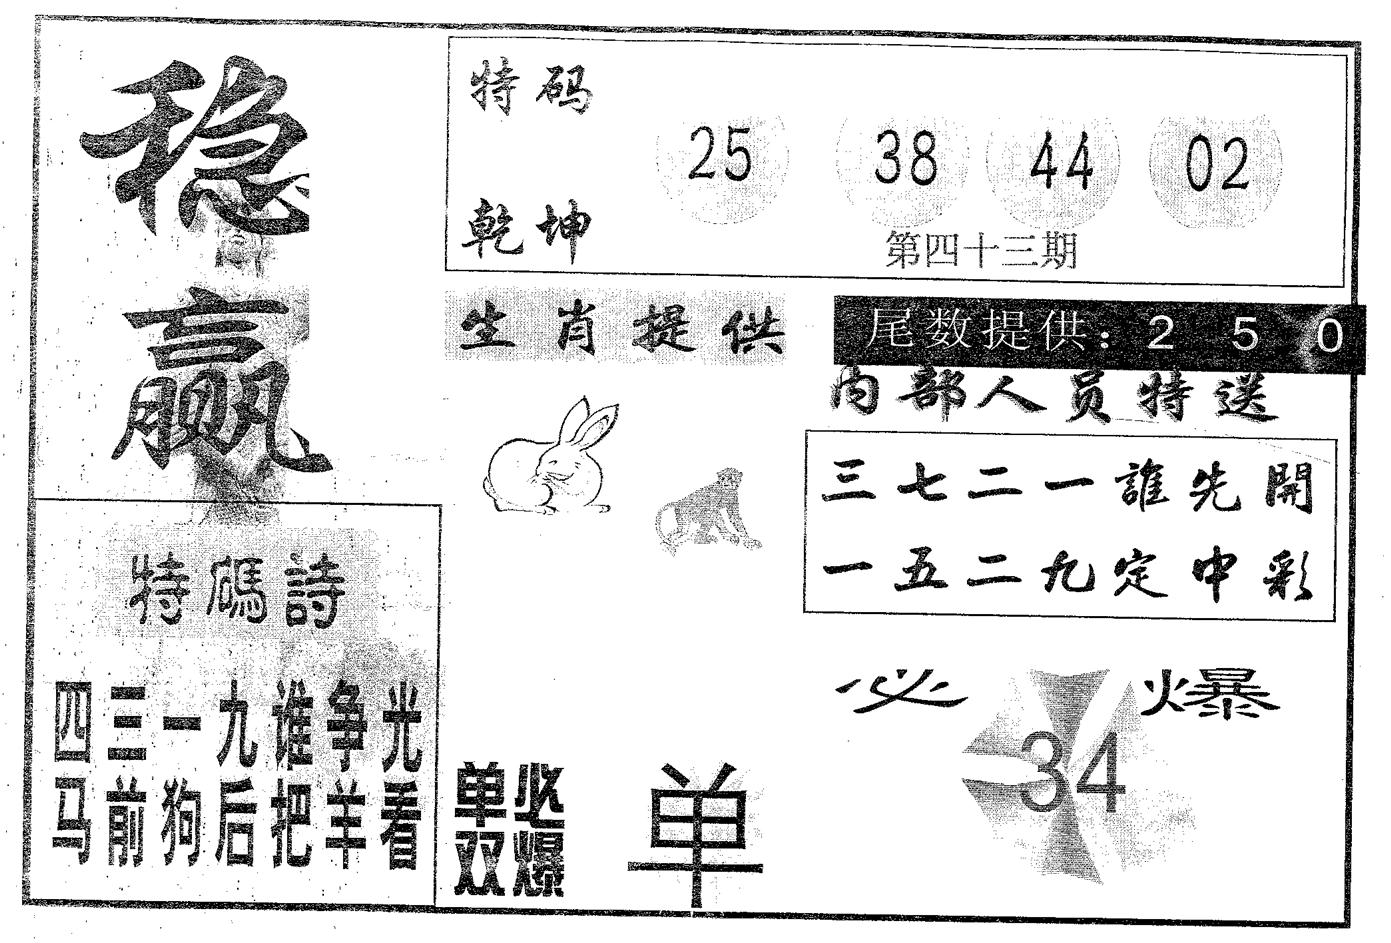 稳
赢
特码
乾坤
25 38 44 02
第四十三期
生肖提供
尾数提供: 2 5 0
内部人员特送
三七二一誰先開
一五二九定中彩
特碼詩
四三一九谁争光
马前狗后把羊看
单双
必爆
单
必爆
34